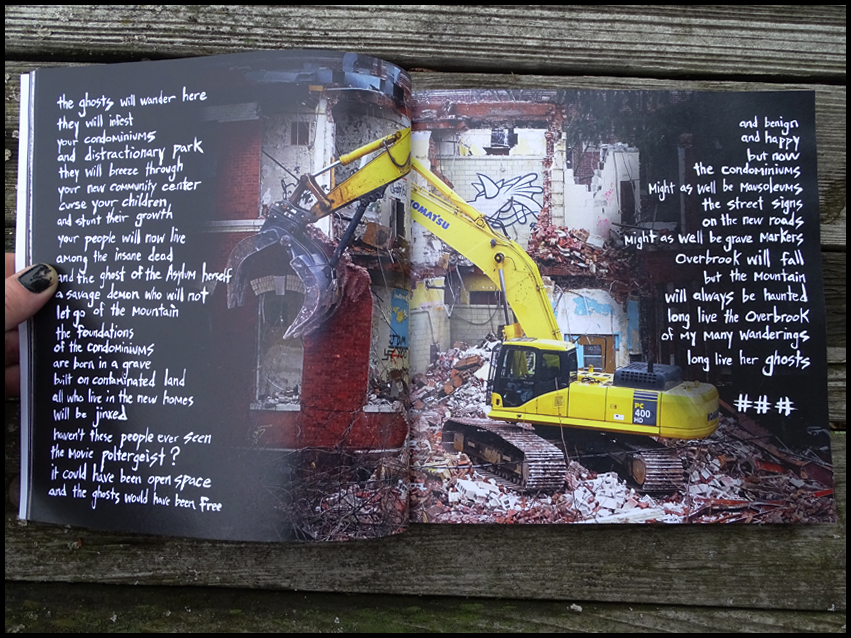 the ghosts will wander here
they will infest
your condominiums
and distractionary park
they will breeze through
your new community center
curse your children
and stunt their growth
your people will now live
among the insane dead
and the ghost of the Asylum herself
a savage demon who will not
let go of the mountain
the foundations
of the condominiums
are born in a grave
bilt on contaminated land
all who live in the new homes
will be jinxed
haven't these people ever seen
the movie poltergeist?
it could have been open space
and the ghosts would have been free
KOMATSU
PC
400
HD
and benign
and happy
but now
the condominiums
Might as well be Mausoleums
the street signs
on the new roads
Might as well be grave Markers
Overbrook will fall
but the Mountain
will always be haunted
long live the Overbrook
of my many wanderings
long live her ghosts
###